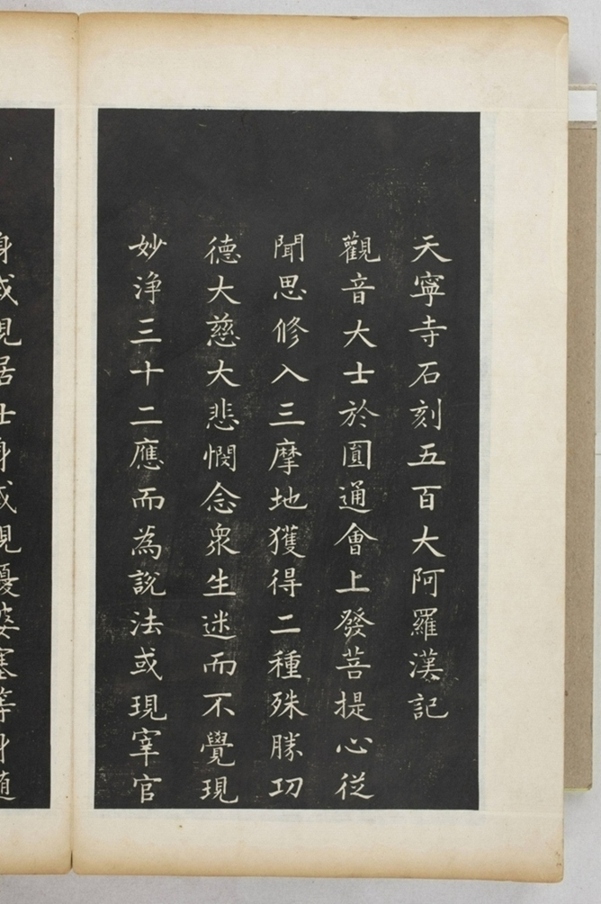 天寧寺石刻五百大阿羅漢記
觀音大士於圓通會上發菩提心從
聞思修入三摩地獲得二種殊勝功
德大慈大悲憫念衆生迷而不覺現
妙淨三十二應而為說法或現宰官
身或現居士身或現優婆塞等身随